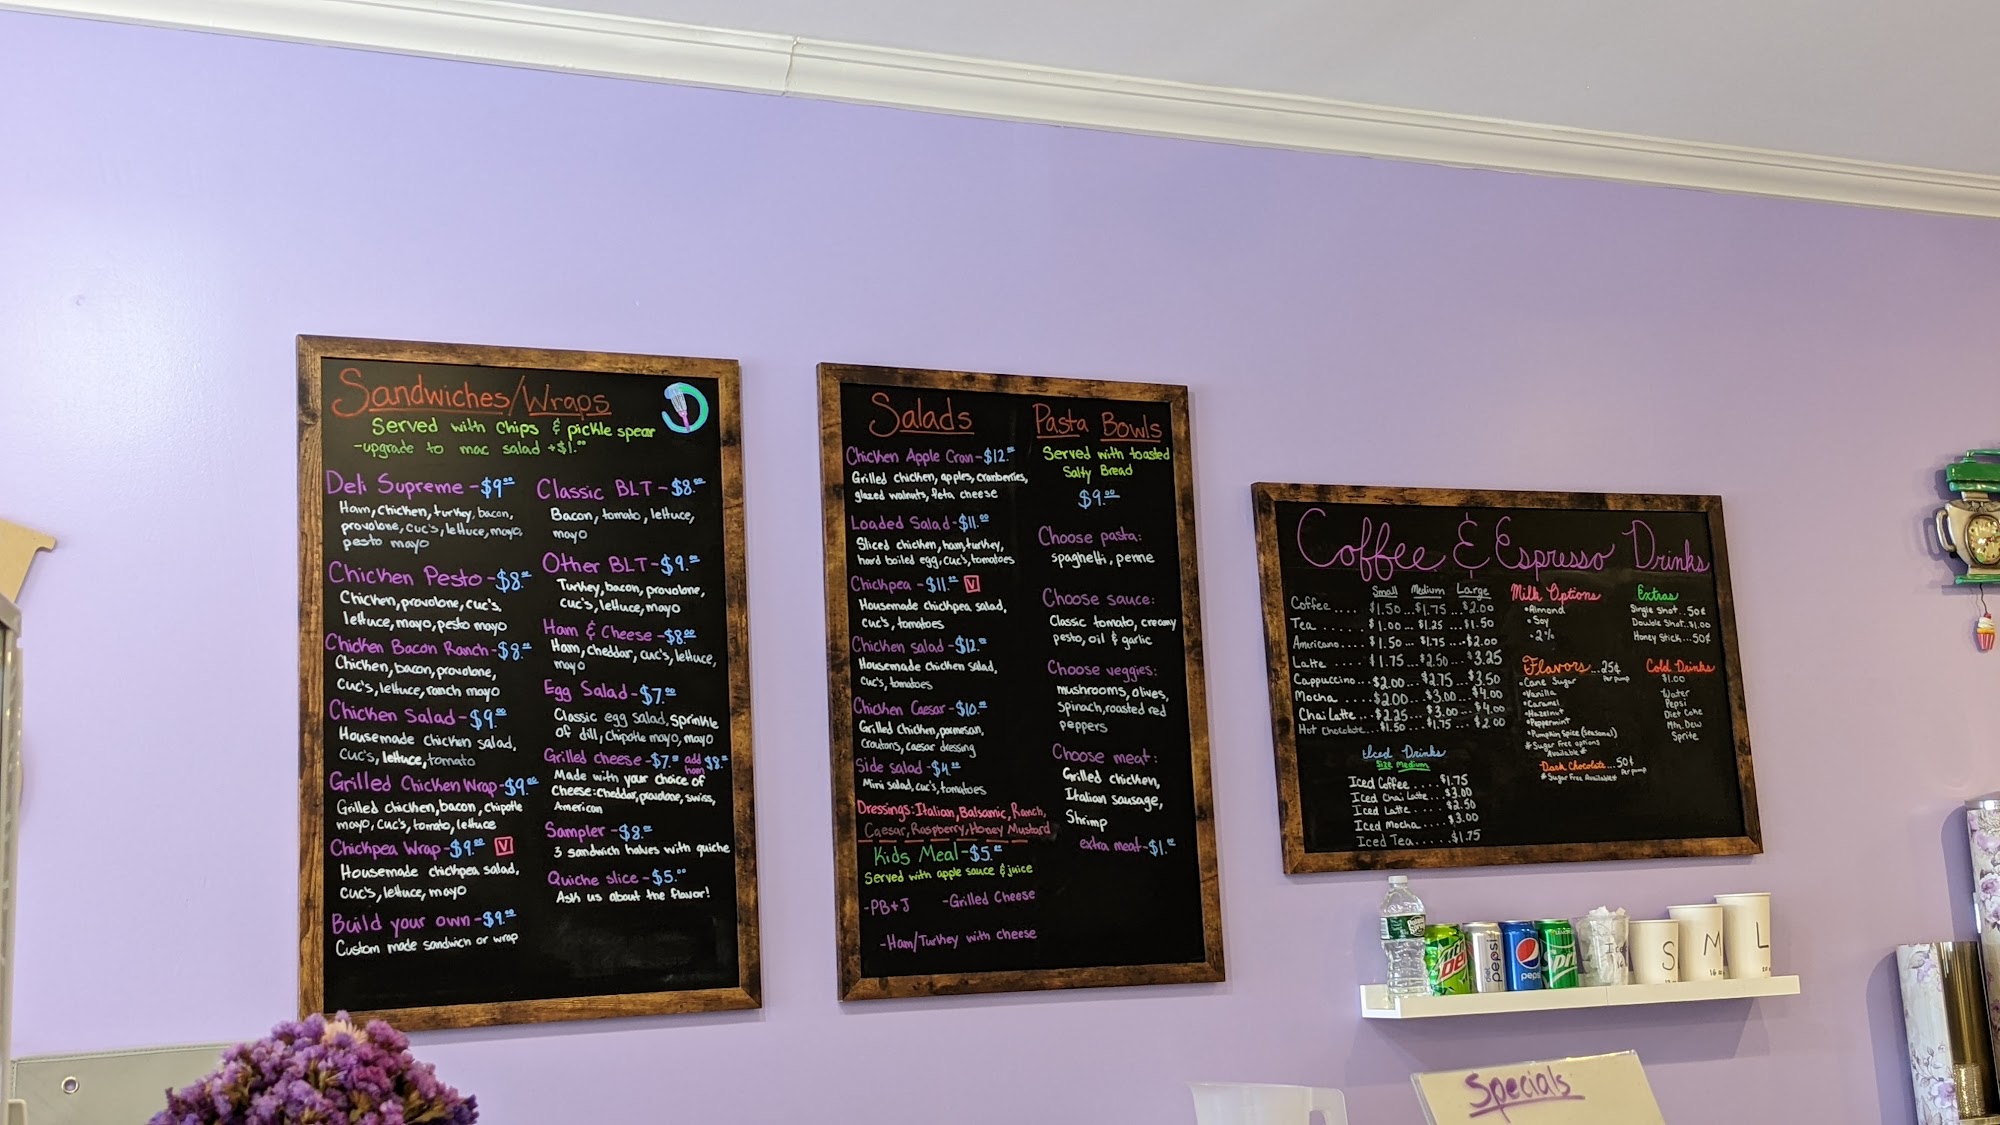 Sandwiches/Wraps
Served with chips & pickle spear
-upgrade to mac salad +$1.00
Deli Supreme - $9.00
Ham, chicken, turkey, bacon,
provolone, cuc's, lettuce, mayo,
pesto mayo
Chicken Pesto - $8.00
Chicken, provolone, cuc's,
lettuce, mayo, pesto mayo
Chicken Bacon Ranch - $8.00
Chicken, bacon, provolone,
cuc's, lettuce, ranch mayo
Chicken Salad - $9.00
Housemade chicken salad,
cuc's, lettuce, tomato
Grilled Chicken Wrap - $9.00
Grilled chicken, bacon, chipotle
mayo, cuc's, tomato, lettuce
Chickpea Wrap - $9.00 V
Housemade chickpea salad,
cuc's, lettuce, mayo
Build your own - $9.00
Custom made sandwich or wrap
Classic BLT - $8.00
Bacon, tomato, lettuce,
mayo
Other BLT - $9.00
Turkey, bacon, provolone,
cuc's, lettuce, mayo
Ham & Cheese - $8.00
Ham, cheddar, cuc's, lettuce,
mayo
Egg Salad - $7.00
Classic egg salad, sprinkle
of dill, chipotle mayo, mayo
Grilled cheese - $7.00 add ham $8.00
Made with your choice of
cheese: cheddar, provolone, swiss,
American
Sampler - $8.00
3 sandwich halves with quiche
Quiche slice - $5.00
Ask us about the flavor!
Salads
Chicken Apple Cran - $12.00
Grilled chicken, apples, cranberries,
glazed walnuts, feta cheese
Loaded Salad - $11.00
Sliced chicken, ham, turkey,
hard boiled egg, cuc's, tomatoes
Chickpea - $11.00 V
Housemade chickpea salad,
cuc's, tomatoes
Chicken salad - $12.00
Housemade chicken salad,
cuc's, tomatoes
Chicken Caesar - $10.00
Grilled chicken, parmesan,
croutons, caesar dressing
Side salad - $4.00
Mini salad, cuc's, tomatoes
Dressings: Italian, Balsamic, Ranch,
Caesar, Raspberry, Honey Mustard
Kids Meal - $5.00
Served with apple sauce & juice
-PB+J -Grilled Cheese
-Ham/Turkey with cheese
Pasta Bowls
Served with toasted
Salty Bread
$9.00
Choose pasta:
spaghetti, penne
Choose sauce:
Classic tomato, creamy
pesto, oil & garlic
Choose veggies:
mushrooms, olives,
spinach, roasted red
peppers
Choose meat:
Grilled chicken,
Italian sausage,
Shrimp
extra meat - $1.00
Coffee & Espresso Drinks
Small Medium Large
Coffee .... $1.50 ... $1.75 ... $2.00
Tea ...... $1.00 ... $1.25 ... $1.50
Americano .... $1.50 ... $1.75 ... $2.00
Latte .... $1.75 ... $2.50 ... $3.25
Cappuccino ... $2.00 ... $2.75 ... $3.50
Mocha ..... $2.00 ... $3.00 ... $4.00
Chai Latte ... $2.25 ... $3.00 ... $4.00
Hot Chocolate ... $1.50 ... $1.75 ... $2.00
Iced Drinks
Size Medium
Iced Coffee .... $1.75
Iced Chai Latte ... $3.00
Iced Latte .... $2.50
Iced Mocha .... $3.00
Iced Tea ..... $1.75
Milk Options
•Almond
•Soy
•2%
Flavors ... 25¢ Per pump
•Cane Sugar
•Vanilla
•Caramel
•Hazelnut
•Peppermint
•Pumpkin Spice (Seasonal)
* Sugar Free options
Available *
Dark Chocolate ... 50¢ Per pump
* Sugar Free Available *
Extras
Single Shot .. 50¢
Double Shot .. $1.00
Honey Stick ... 50¢
Cold Drinks
$1.00
Water
Pepsi
Diet Coke
Mtn Dew
Sprite
pepsi
pepsi
S
16
M
16
L
Specials